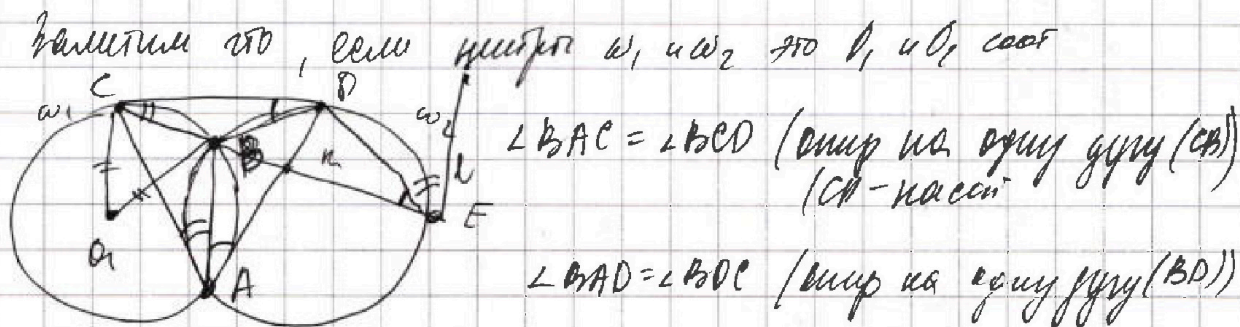 Заметим что, если центры ω₁ и ω₂ это O₁ и O₂ соот
C D
ω₁ ω₂
B K L
E
O₁
A
∠BAC = ∠BCD (опир на одну дугу (CB)
(CD - касат
∠BAD = ∠BDC (опир на одну дугу (BD))